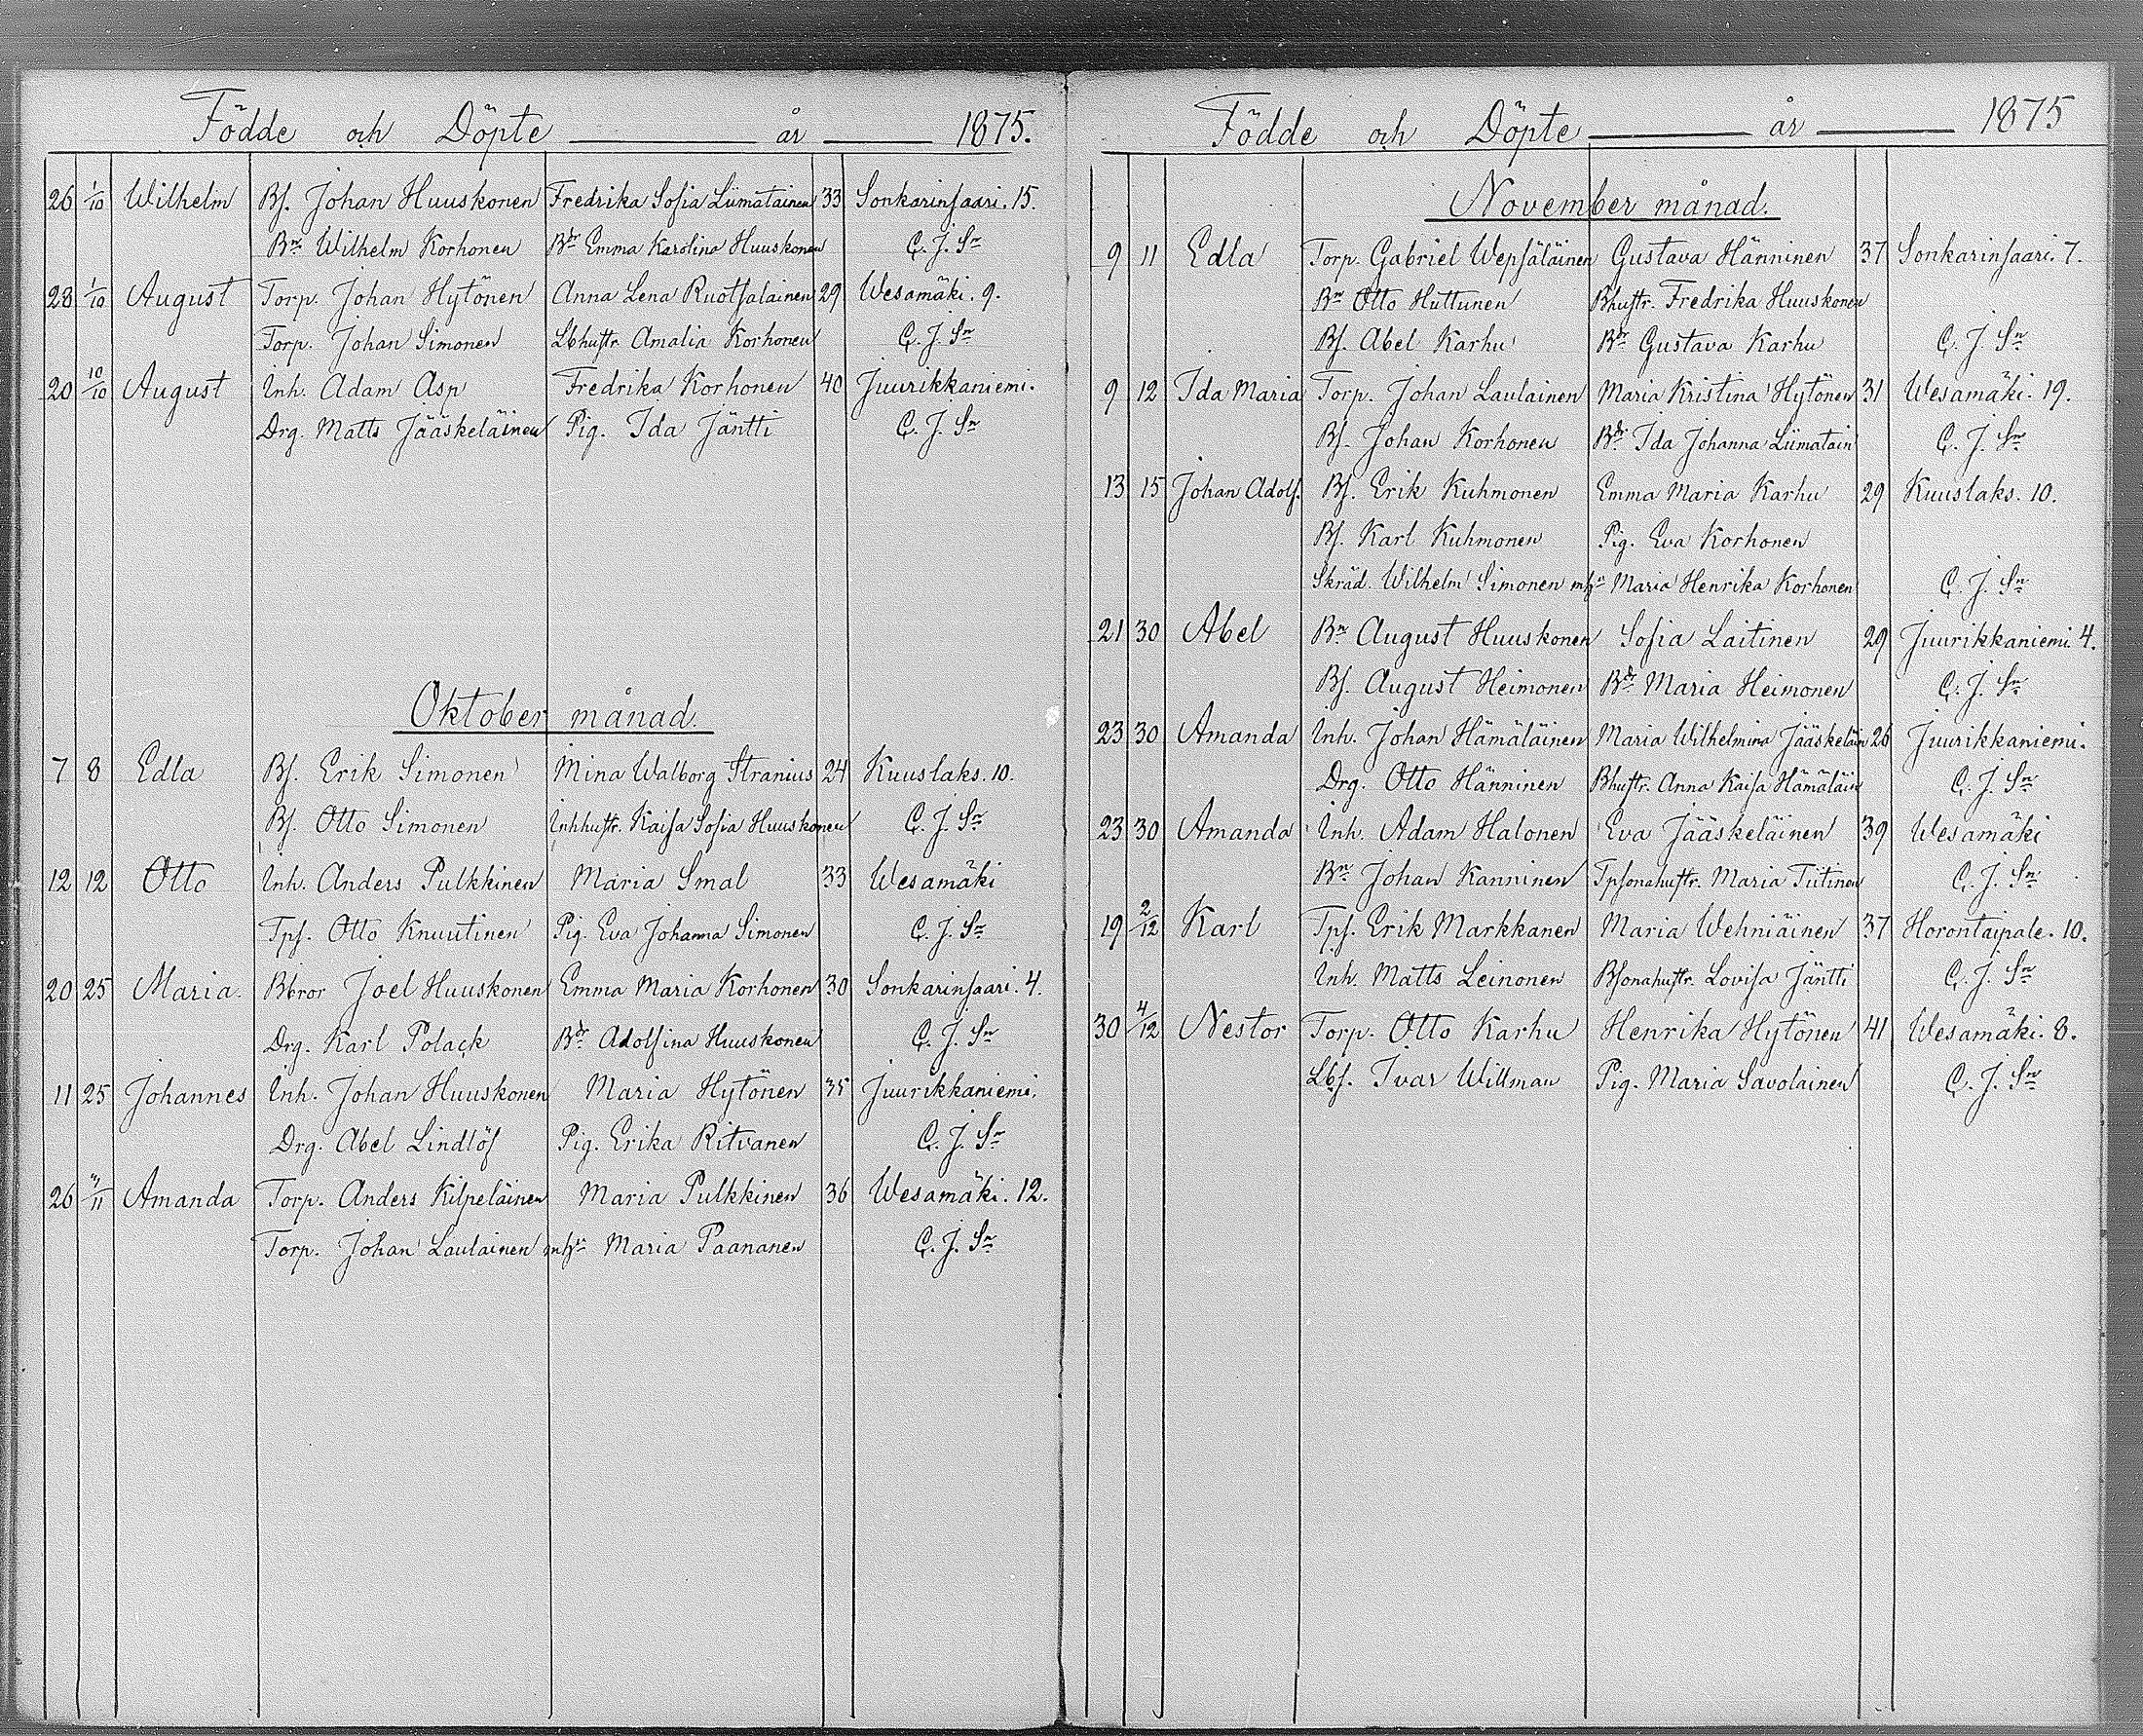 Födde och Döpte år 1875.
26 1/10 Wilhelm Bf. Johan Huuskonen Fredrika Sofia Liimatainen 33 Sonkarinsaari. 15.
Bn Wilhelm Korhonen Bdr Emma Karolina Huuskonen C. J. Sn
28 1/10 August Torp. Johan Hytönen Anna Lena Ruotsalainen 29 Wesamäki. 9.
Torp. Johan Simonen Lbhustr. Amalia Korhonen C. J. Sn
20 10/10 August Inh. Adam Asp Fredrika Korhonen 40 Juurikkaniemi.
Drg. Matts Jääskeläinen Pig. Ida Jäntti C. J. Sn
Oktober månad.
7 8 Edla Bf. Erik Simonen Mina Walborg Stranius 24 Kuuslaks. 10.
Bf. Otto Simonen Inhhustr. Kaisa Sofia Huuskonen C. J. Sn
12 12 Otto Inh. Anders Pulkkinen Maria Smal 33 Wesamäki
Tpf. Otto Knuutinen Pig. Eva Johanna Simonen C. J. Sn
20 25 Maria. Bbror Joel Huuskonen Emma Maria Korhonen 30 Sonkarinsaari. 4.
Drg. Karl Polack Bdr Adolfina Huuskonen C. J. Sn
11 25 Johannes Inh. Johan Huuskonen Maria Hytönen 35 Juurikkaniemi.
Drg. Abel Lindlöf Pig. Erika Ritvanen C. J. Sn
26 /11 Amanda Torp. Anders Kilpeläinen Maria Pulkkinen 36 Wesamäki. 12.
Torp. Johan Laulainen mhu Maria Paananen C. J. Sn
Födde och Döpte år 1875
November månad.
9 11 Edla Torp. Gabriel Wepsäläinen Gustava Hänninen 37 Sonkarinsaari. 7.
Bn Otto Huttunen Bhustr. Fredrika Huuskonen
Bf. Abel Karhu Bdr Gustava Karhu C. J. Sn
9 12 Ida Maria Torp. Johan Laulainen Maria Kristina Hytönen 31 Wesamäki. 19.
Bf. Johan Korhonen Bdr Ida Johanna Liimatain C. J. Sn
13 15 Johan Adolf. Bf. Erik Kuhmonen Emma Maria Karhu 29 Kuuslaks. 10.
Bf. Karl Kuhmonen Pig. Eva Korhonen
Skräd. Wilhelm Simonen mhu Maria Henrika Korhonen C. J. Sn
21 30 Abel Bn August Huuskonen Sofia Laitinen 29 Juurikkaniemi. 4.
Bf. August Heimonen Bdr Maria Heimonen C. J. Sn
23 30 Amanda Inh. Johan Hämäläinen Maria Wilhelmina Jääskeläin 26 Juurikkaniemi.
Drg. Otto Hänninen Bhustr. Anna Kaisa Hämäläin C. J. Sn
23 30 Amanda Inh. Adam Halonen Eva Jääskeläinen 39 Wesamäki
Bn Johan Kanninen Tpsonahustr. Maria Tiitinen C. J. Sn
19 2/12 Karl Tpf. Erik Markkanen Maria Wehniäinen 37 Horontaipale. 10.
Inh. Matts Leinonen Bsonahustr. Lovisa Jäntti C. J. Sn
30 4/12 Nestor Torp. Otto Karhu Henrika Hytönen 41 Wesamäki. 8.
Lbf. Ivar Willman Pig. Maria Savolainen C. J. Sn